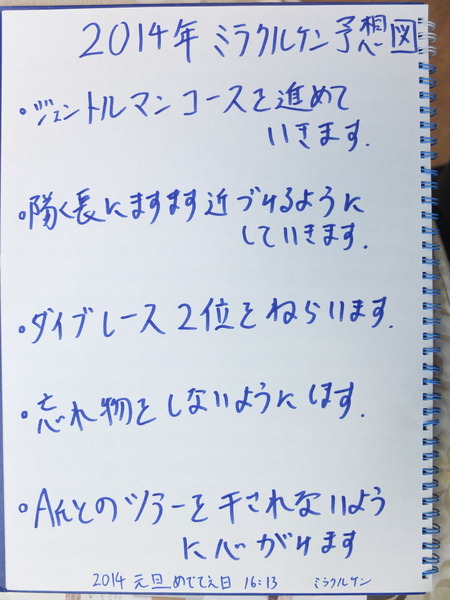 2014年 ミラクルケン予想図
・ジェントルマンコースを進めて
いきます.
・隊く長にますます近づけるように
していきます.
・ダイブレース2位をねらいます.
・忘れ物をしないようにします.
・Aんとのツアーを干されないよう
に心がけます
2014 元旦めでてえ日 16:13 ミラクルケン